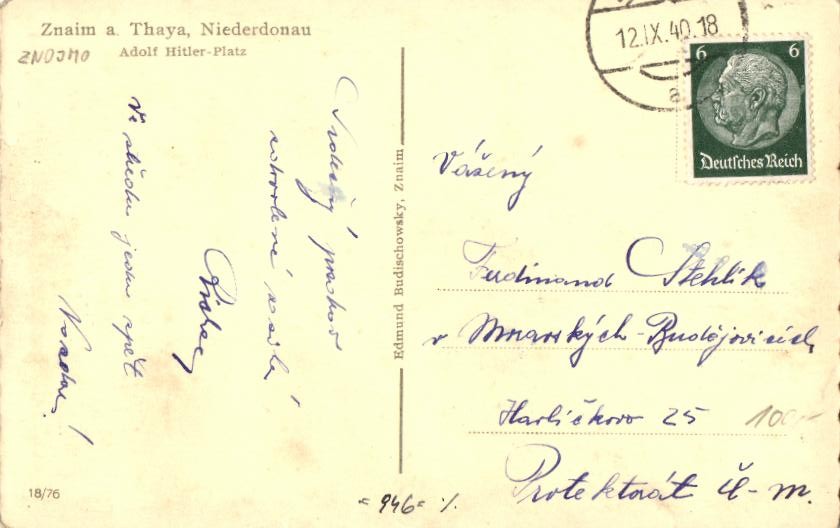 Znaim a. Thaya, Niederdonau
Adolf Hitler-Platz
ZNOJMO
12.IX.40.18
a
6 6
Deutsches Reich
Srdečný pozdrav
Ve středu jedu zpět
Nazdar!
Edmund Budischowsky, Znaim
Vážený
Ferdinand Stehlík
v Mor. Budějovicích
Havlíčkova 25
100,-
Protektorát Č-M.
18/76
=946= %